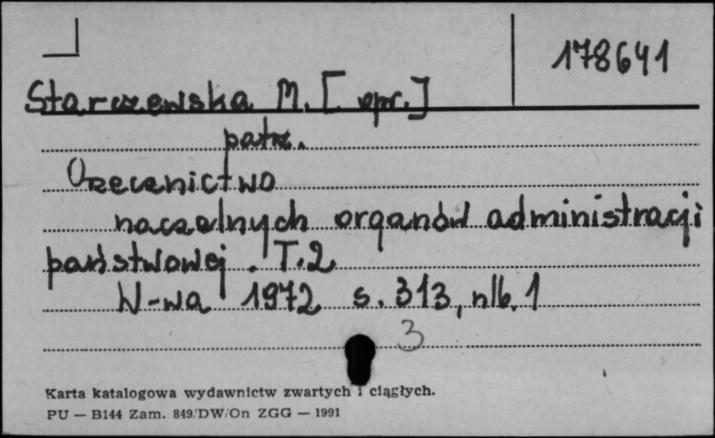 178641
Starczewska M. [opr.]
patrz.
Orzecznictwo
naczelnych organów administracji
państwowej. T.2
W-wa 1972 s. 313, nlb. 1
3
Karta katalogowa wydawnictw zwartych i ciągłych.
PU — B144 Zam. 849/DW/On ZGG — 1991